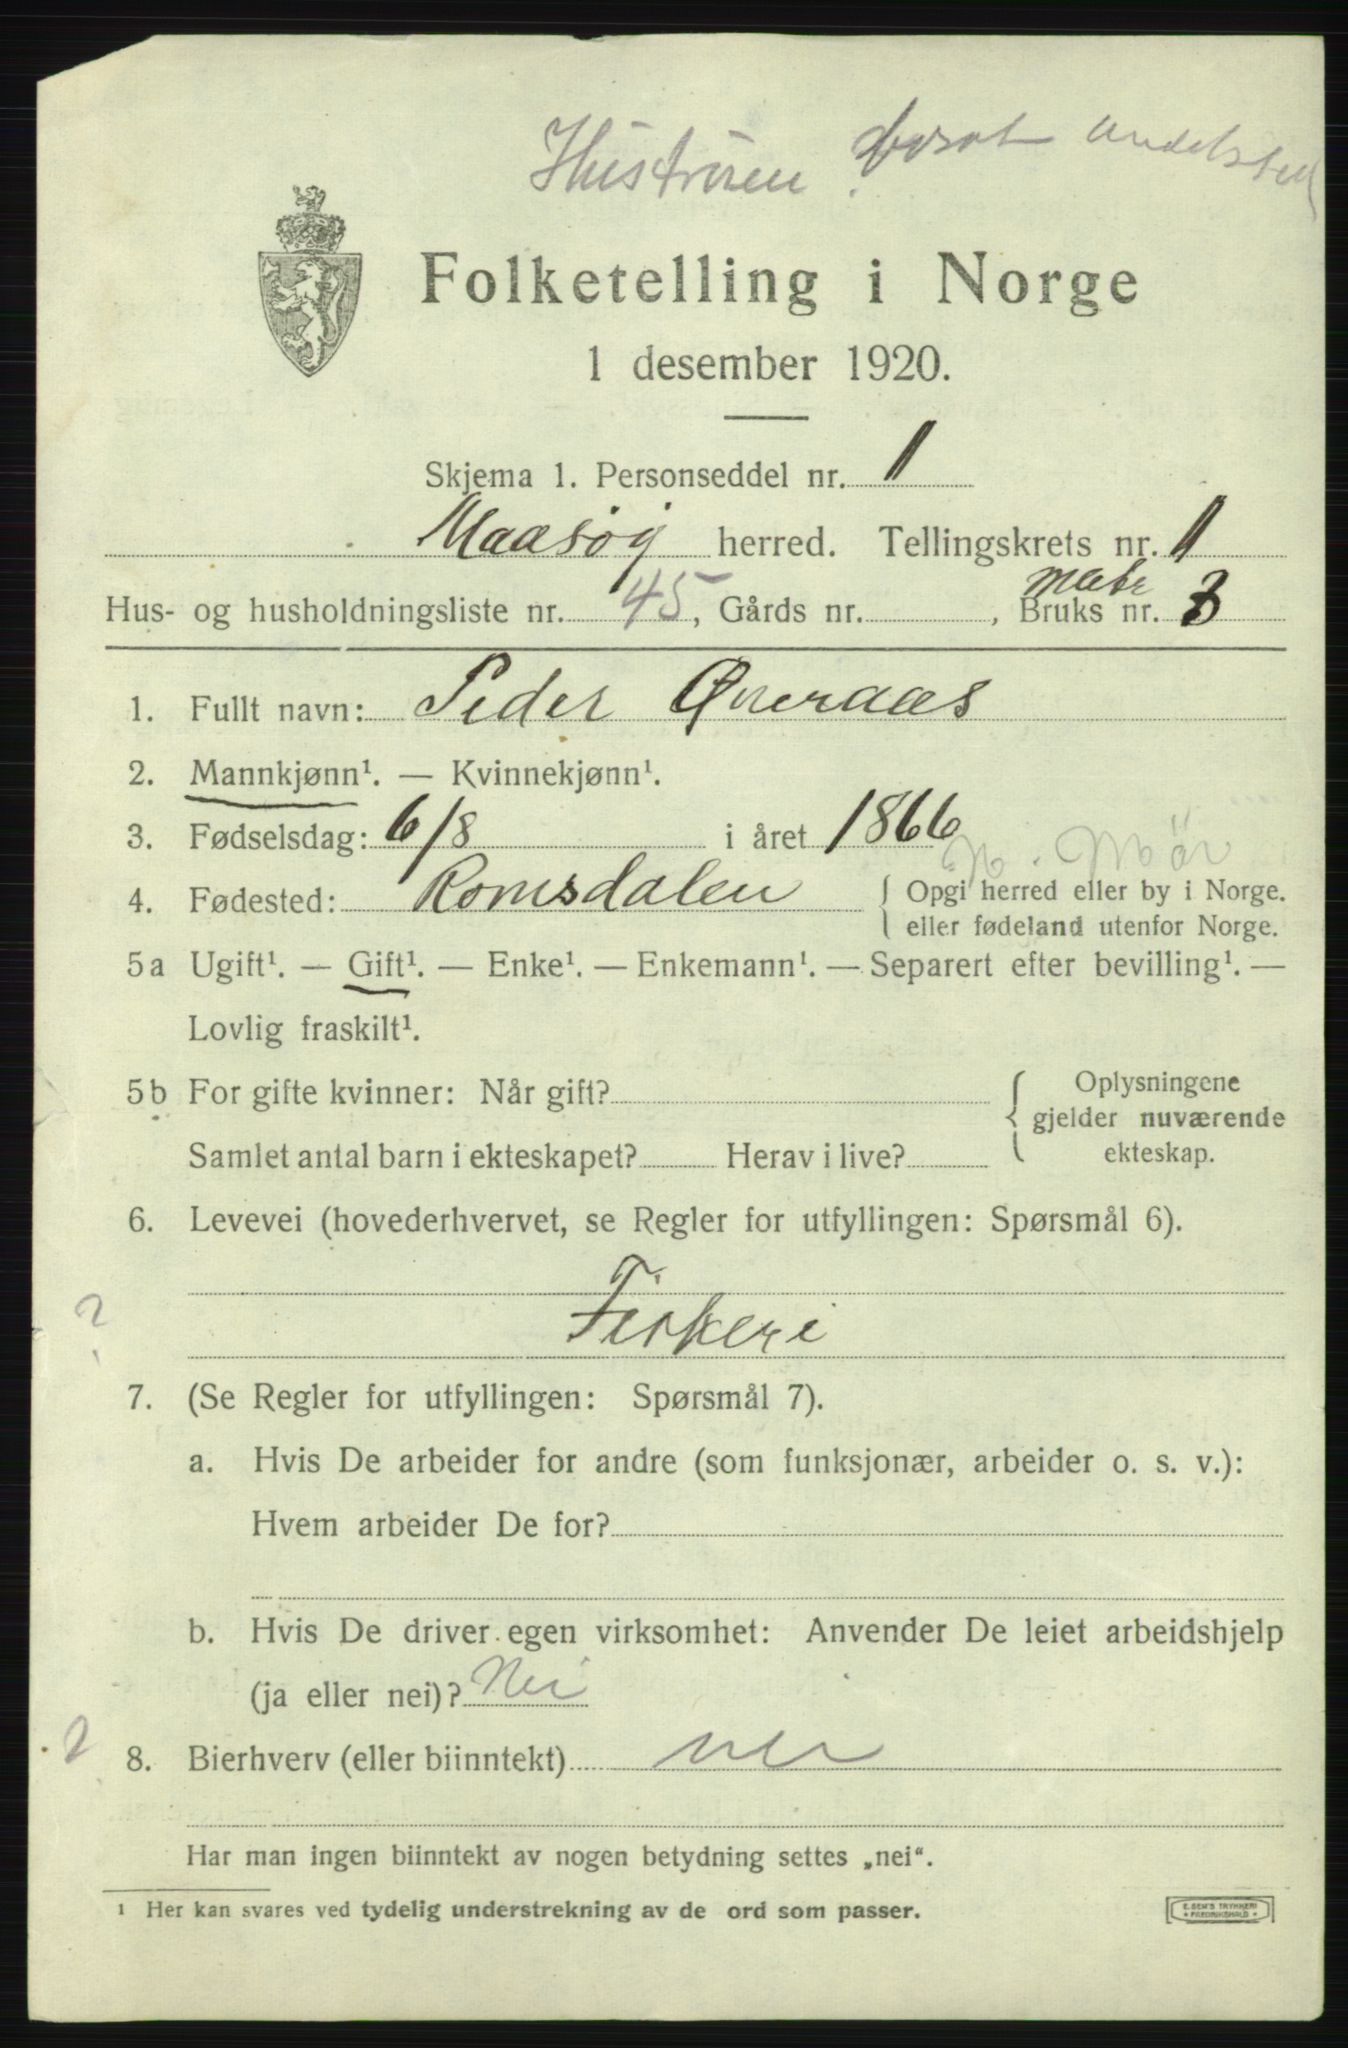 Hustruen bosat andetsted
Folketelling i Norge
1 desember 1920.
Skjema 1. Personseddel nr. 1
Maasøy herred. Tellingskrets nr. 1
Matr
Hus- og husholdningsliste nr. 45, Gårds nr. , Bruks nr. 3
1. Fullt navn: Peder Øveraas
2. Mannkjønn¹. — Kvinnekjønn¹.
3. Fødselsdag: 6/8 i året 1866
4. Fødested: Romsdalen { Opgi herred eller by i Norge.
eller fødeland utenfor Norge.
5a Ugift¹. — Gift¹. — Enke¹. — Enkemann¹. — Separert efter bevilling¹. —
Lovlig fraskilt¹.
5b For gifte kvinner: Når gift? { Oplysningene
gjelder nuværende
ekteskap.
Samlet antal barn i ekteskapet? Herav i live?
6. Levevei (hovederhvervet, se Regler for utfyllingen: Spørsmål 6).
?
Fiskeri
7. (Se Regler for utfyllingen: Spørsmål 7).
a. Hvis De arbeider for andre (som funksjonær, arbeider o. s. v.):
Hvem arbeider De for?
b. Hvis De driver egen virksomhet: Anvender De leiet arbeidshjelp
(ja eller nei)? Nei
8. Bierhverv (eller biinntekt) nei
Har man ingen biinntekt av nogen betydning settes „nei“.
¹ Her kan svares ved tydelig understrekning av de ord som passer.
E. SEM'S TRYKKERI
FREDRIKSHALD